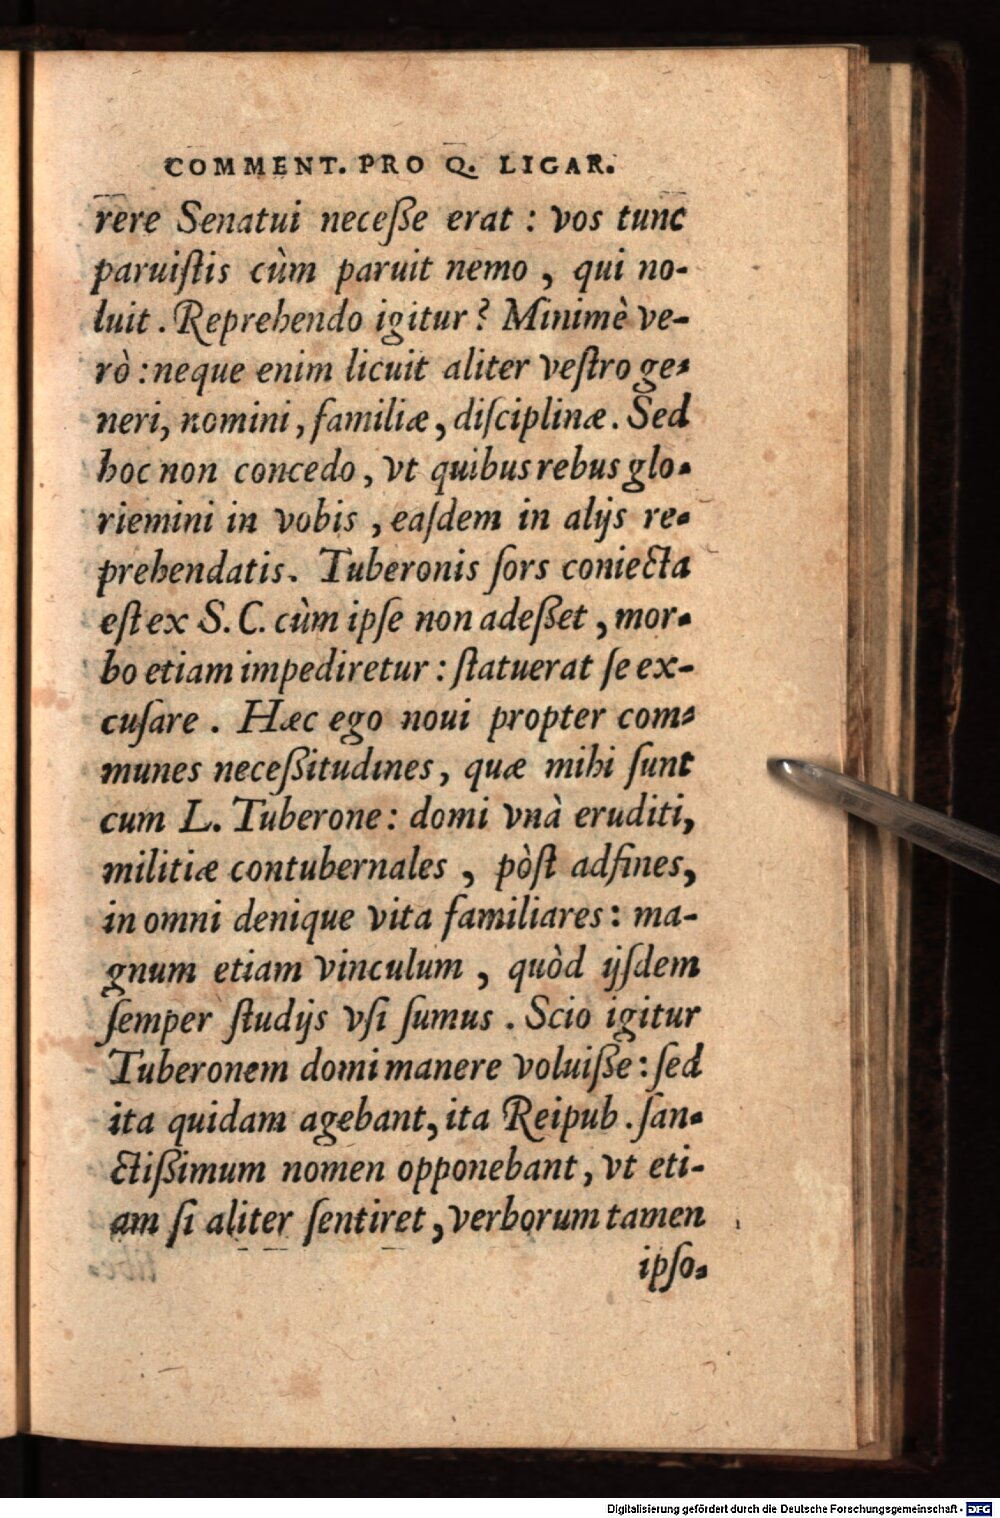 COMMENT. PRO Q. LIGAR.
rere Senatui neceſße erat : vos tunc
paruiſtis cùm paruit nemo , qui no-
luit . Reprehendo igitur ? Minimè ve-
rò : neque enim licuit aliter veſtro ge-
neri, nomini , familiæ , diſciplinæ . Sed
hoc non concedo , vt quibus rebus glo-
riemini in vobis , eaſdem in alijs re-
prehendatis. Tuberonis ſors coniecta
eſt ex S. C. cùm ipſe non adeſßet , mor-
bo etiam impediretur : ſtatuerat ſe ex-
cuſare . Hæc ego noui propter com-
munes neceſßitudines , quæ mihi ſunt
cum L. Tuberone : domi vnà eruditi,
militiæ contubernales , pòſt adfines,
in omni denique vita familiares : ma-
gnum etiam vinculum , quòd ijſdem
ſemper ſtudijs vſi ſumus . Scio igitur
Tuberonem domi manere voluiſße : ſed
ita quidam agebant, ita Reipub . ſan-
ctiſßimum nomen opponebant , vt eti-
am ſi aliter ſentiret , verborum tamen
ipſo-
Digitalisierung gefördert durch die Deutsche Forschungsgemeinschaft - DFG